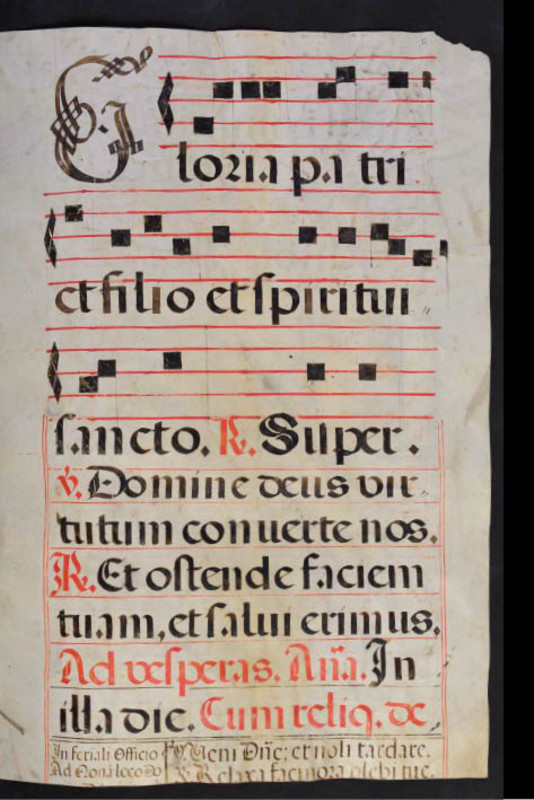 Gloria patri
et filio et spiritui
sancto. R. Super.
v. Domine deus vir
tutum conuerte nos.
R. Et ostende faciem
tuam, et salui erimus.
Ad vesperas. Aña. In
illa die. Cum reliq. de
In feriali Officio V. Veni Dñe: et noli tardare.
Ad Nonã loco Do R. Relaxa facinora plebi tue.